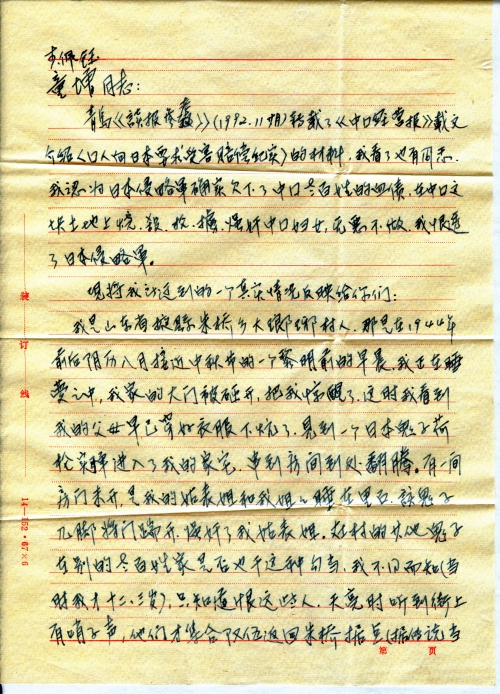 李佩钰
童增同志:
青岛《(1992.11月)转载了《中口经营报》载文
介绍《口人向日本要求受害赔偿纪实》的材料,我看了也有同感.
我认为日本侵略军确实欠下了中口老百姓的血债,在中口文
土地上烧.杀.抢.掳.奸中口妇女,无恶不做.我恨透
了日本侵略军。
现将我知道到的一个真实情况反映给你们:
我是山东省掖县朱桥乡大琊琊村人.那是在1944年
前后阴历八月接近中秋节的一个黎明前的早晨.我正在睡
梦之中,我家的大门被砸开,把我惊醒了.这时我看到
我的父母早已穿好衣服下炕了.见到一个日本鬼子荷
枪实弹进入了我的家宅.串到房间到处翻腾。有一间
房门未开,是我的姑表姐和我姐姐睡在里面.该鬼子
几脚将门踹开,奸了我姑表姐.在村的其他鬼子
在别的老百姓家是否也干这种勾当,我不得而知(当
时我才十二.三岁),只知道恨这些人.天亮时听到街上
有哨子声,他们才集合队伍返回朱桥据点(据传说当
装 订 线
14—152·67×6
第 页